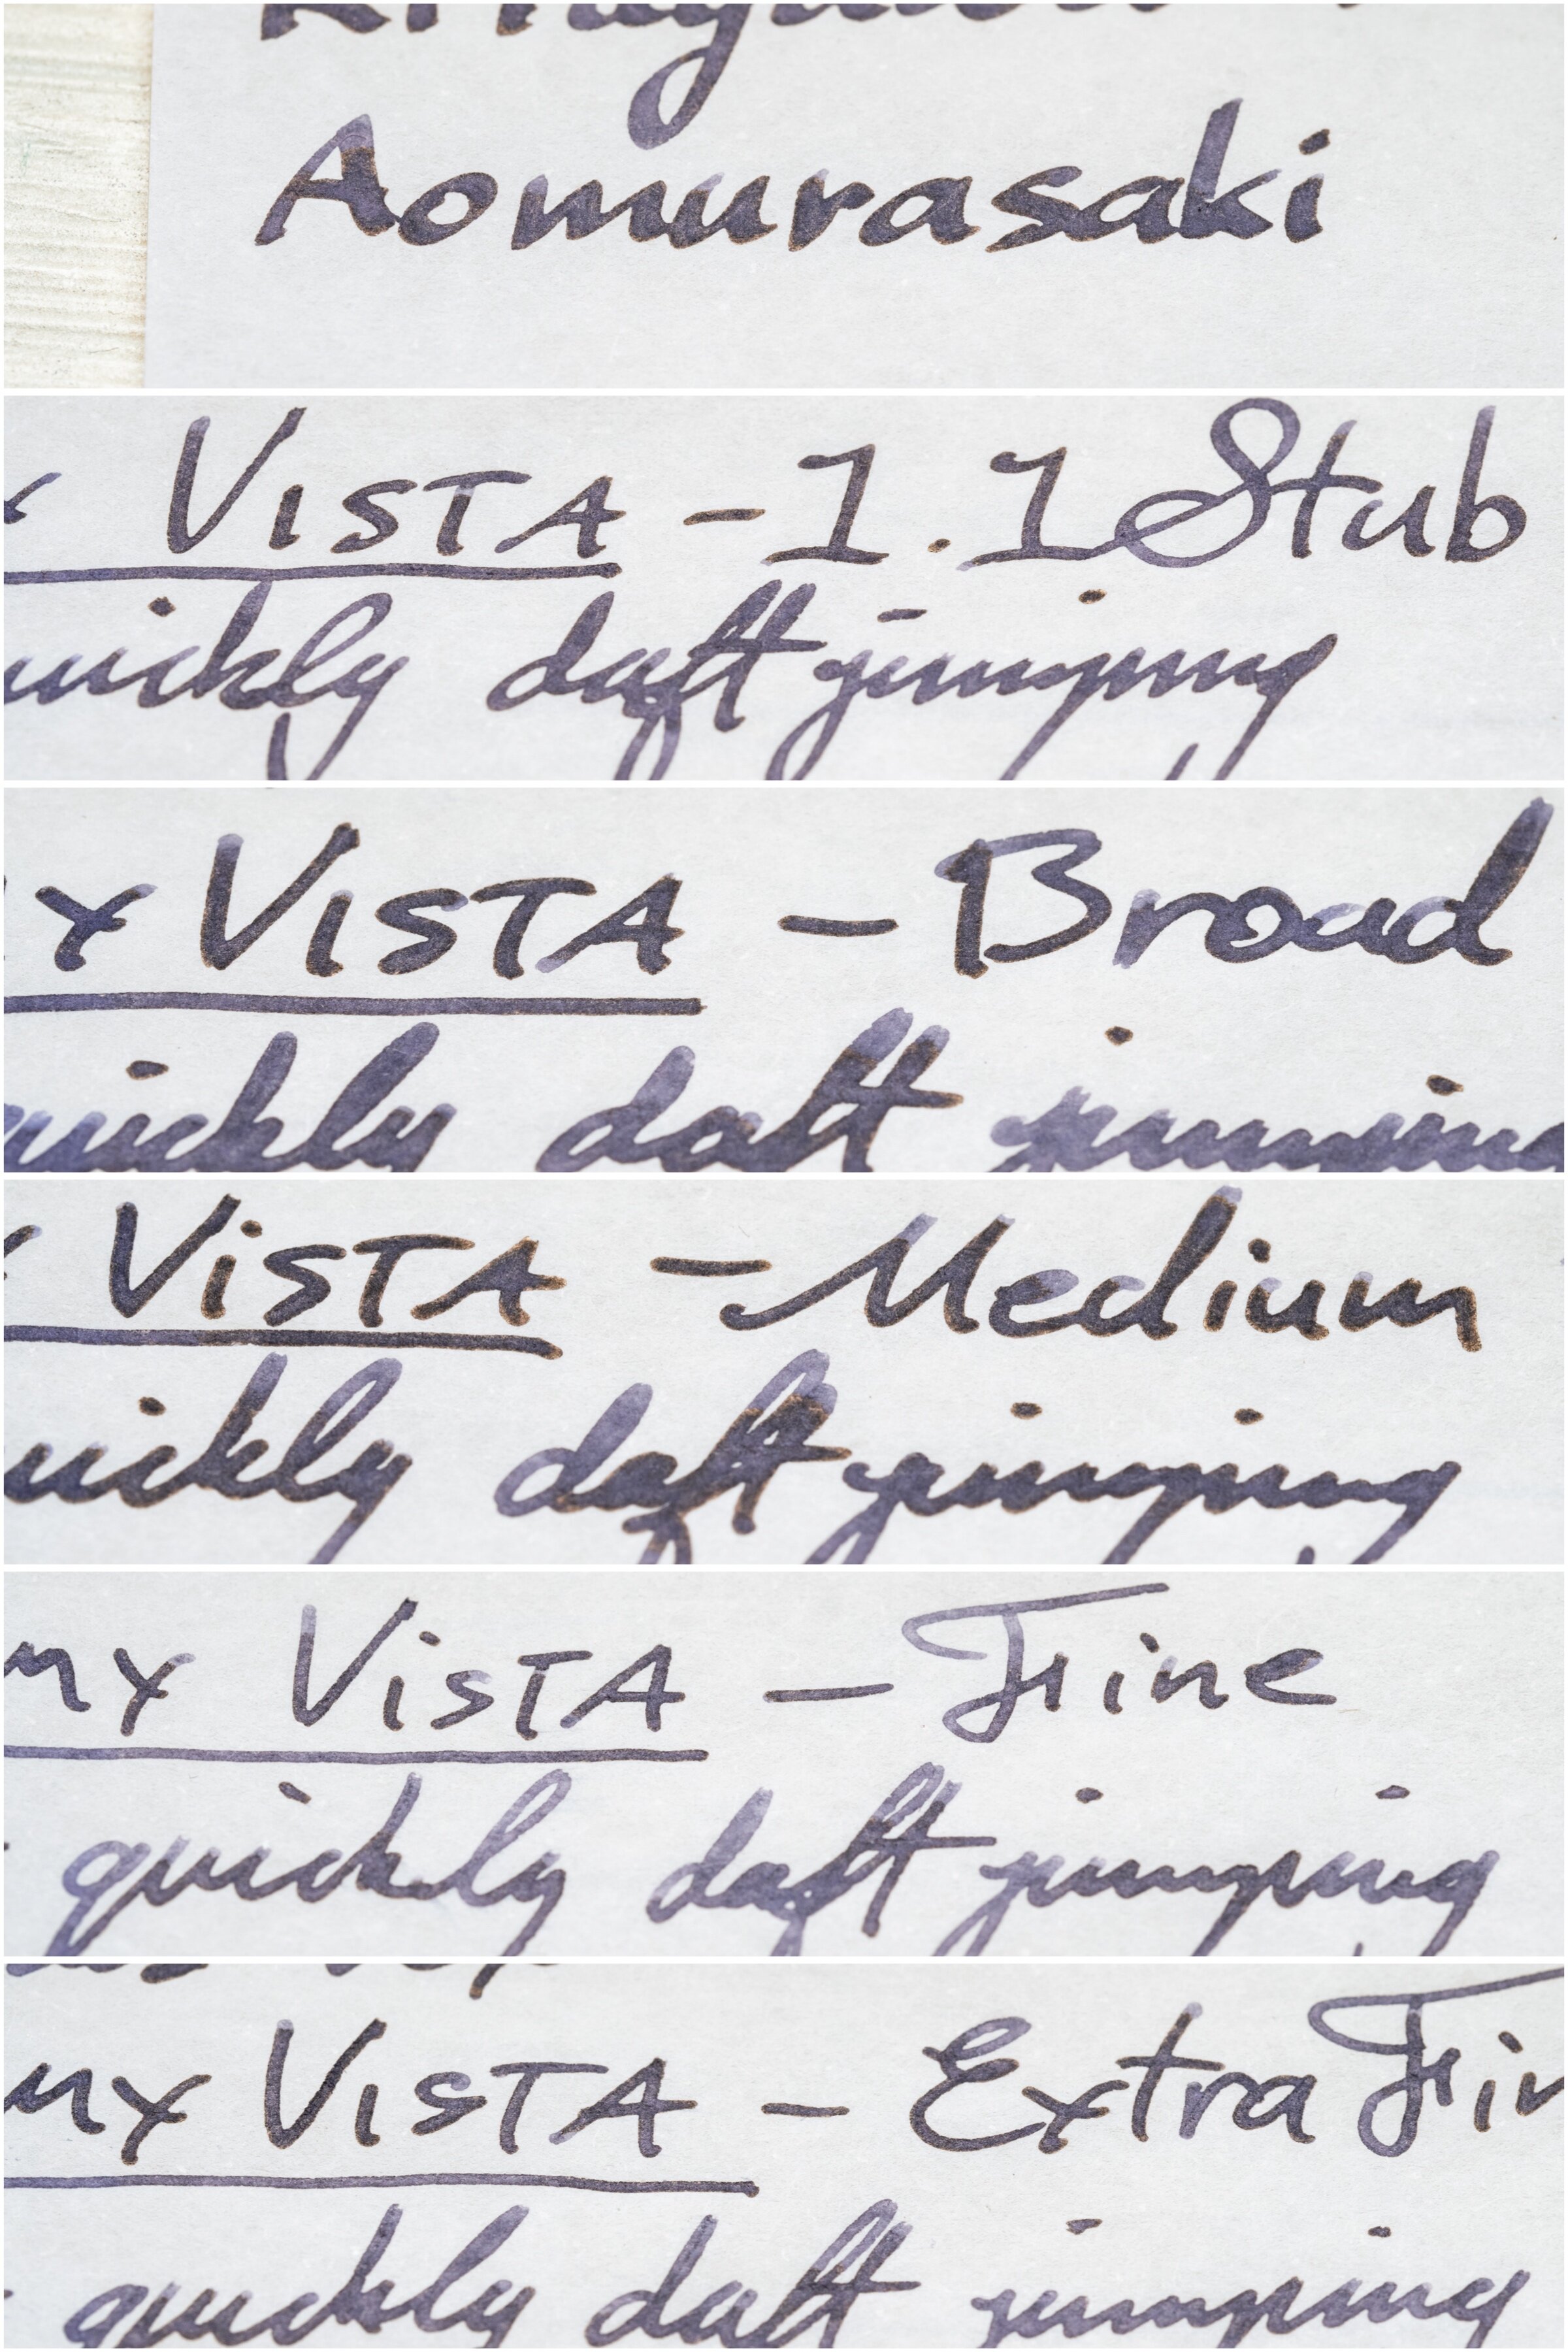 Aomurasaki
x VISTA - 1.1 Stub
uickly daft jumping
x VISTA - Broad
quickly daft jumping
ViSTA - Medium
uickly daft jumping
my ViSTA - Fine
quickly daft jumping
my VISTA - Extra Fin
quickly daft jumping